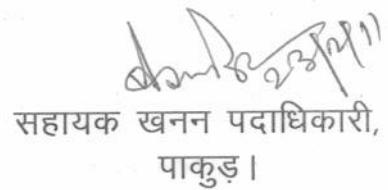 23/2/11
सहायक खनन पदाधिकारी,
पाकुड़।